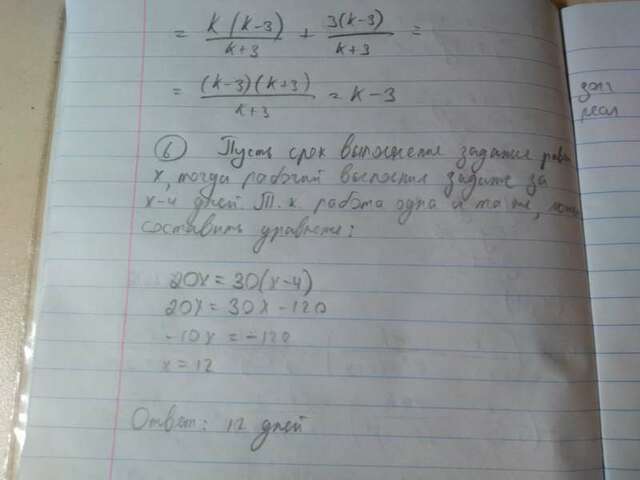 = k(k-3)/k+3 + 3(k-3)/k+3 =
= (k-3)(k+3)/k+3 = k-3
6 Пусть срок выполнения задания равен
x, тогда рабочий выполнил задание за
x-4 дней. Т.к. работа одна и та же, можно
составить уравнение:
20x = 30(x-4)
20x = 30x - 120
-10x = -120
x = 12
Ответ: 12 дней